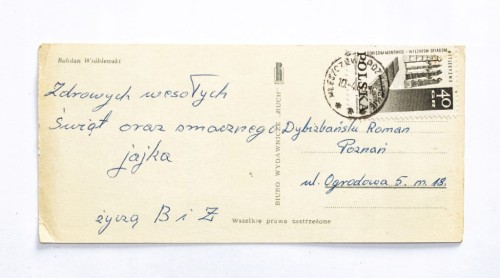 Bohdan Wróblewski
Zdrowych wesołych
Świąt oraz smacznego
jajka
życzą B i Z
BIURO WYDAWNICZE „RUCH”
Wszelkie prawa zastrzeżone
POLSKA
40
GR
Dybizbański Roman
Poznań
ul. Ogrodowa 5. m. 13.